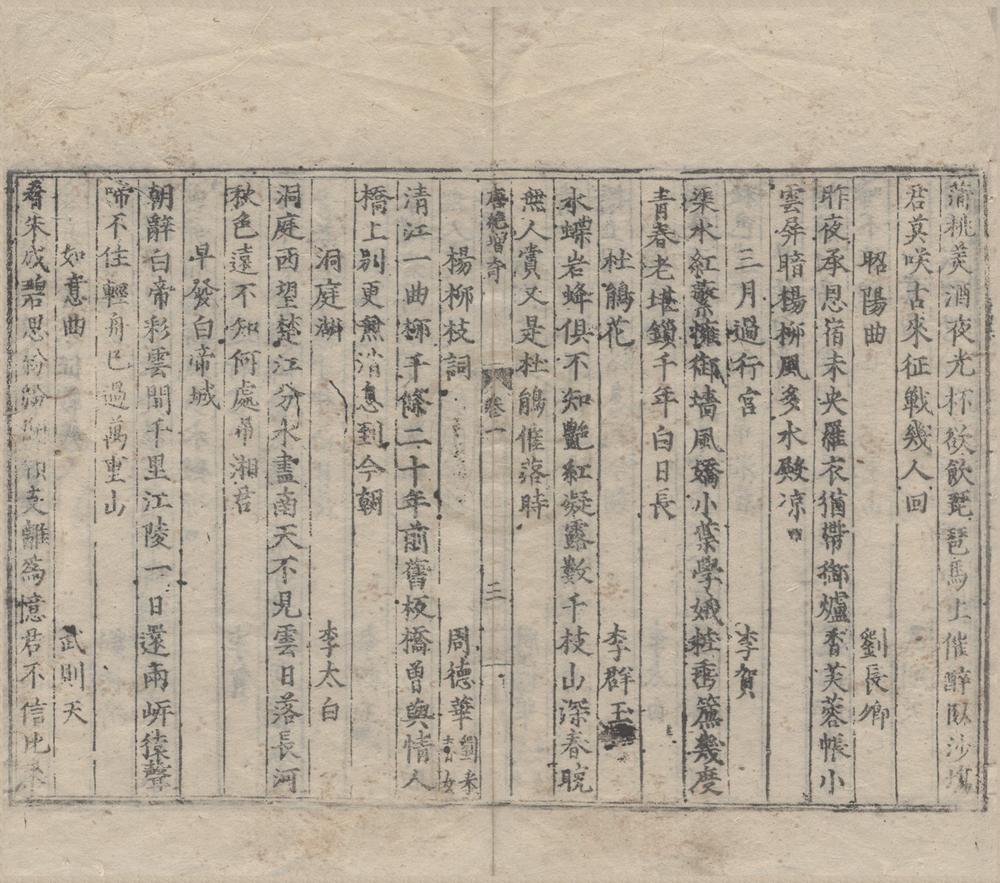 蒲桃美酒夜光杯欲飲琵琶馬上催醉臥沙塲
君莫咲古來征戰幾人回
昭陽曲 劉長卿
昨夜承恩宿未央羅衣猶帶御爐香芙蓉帳小
雲屏暗楊柳風多水殿凉
三月過行宮 李賀
渠水紅蘩擁御墻風嬌小葉學娥粧垂簾幾度
青春老堪鎖千年白日長
杜鵑花 李群玉
水蝶岩蜂俱不知艶紅凝露數千枝山深春晩
無人賞又是杜鵑催落時
唐絶増奇 卷一 三
楊柳枝詞 周德華 劉采春女
清江一曲栁千條二十年前舊板橋曽與情人
橋上別更無消息到今朝
洞庭湖 李太白
洞庭西望楚江分水盡南天不見雲日落長沙
秋色遠不知何處吊湘君
早發白帝城
朝辭白帝彩雲間千里江陵一日還兩岍猿聲
啼不住輕舟已過萬重山
如意曲 武則天
看朱成碧思紛紛 支離爲憶君不信比來